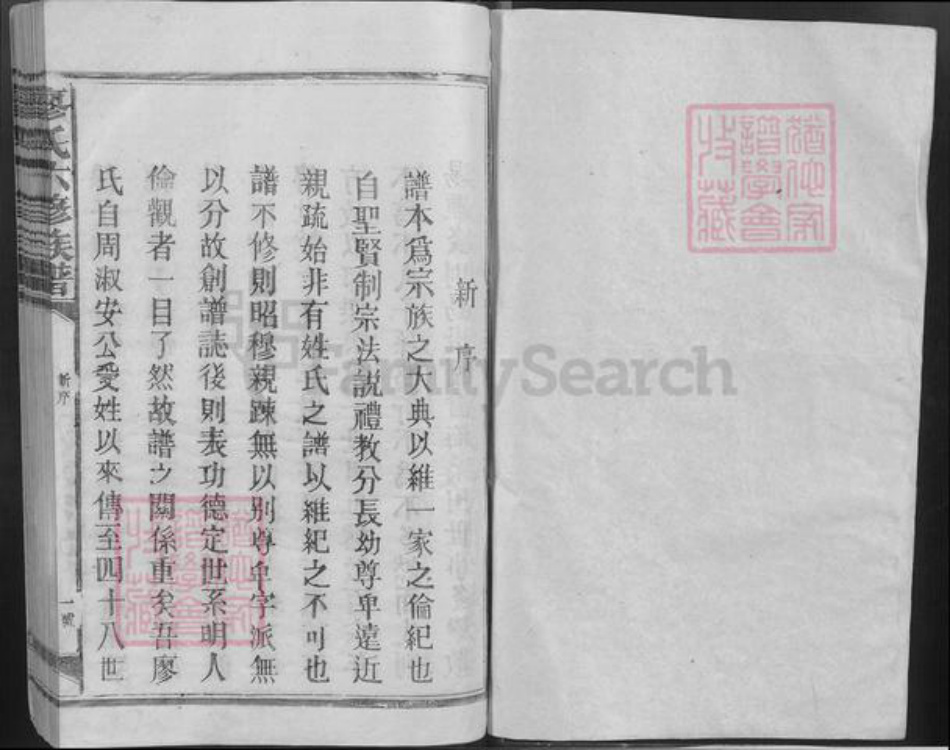 新序
譜本爲宗族之大典以維一家之倫紀也
自聖賢制宗法説禮教分長幼尊卑遠近
親疏始非有姓氏之譜以維紀之不可也
譜不修則昭穆親踈無以别尊卑字派無
以分故創譜誌後則表功德定世系明人
倫觀者一目了然故譜之關係重矣吾廖
氏自周淑安公受姓以來傳至四十八世
廖氏六修族譜
新序
一
FamilySearch
譜學會
收藏
譜學會
收藏